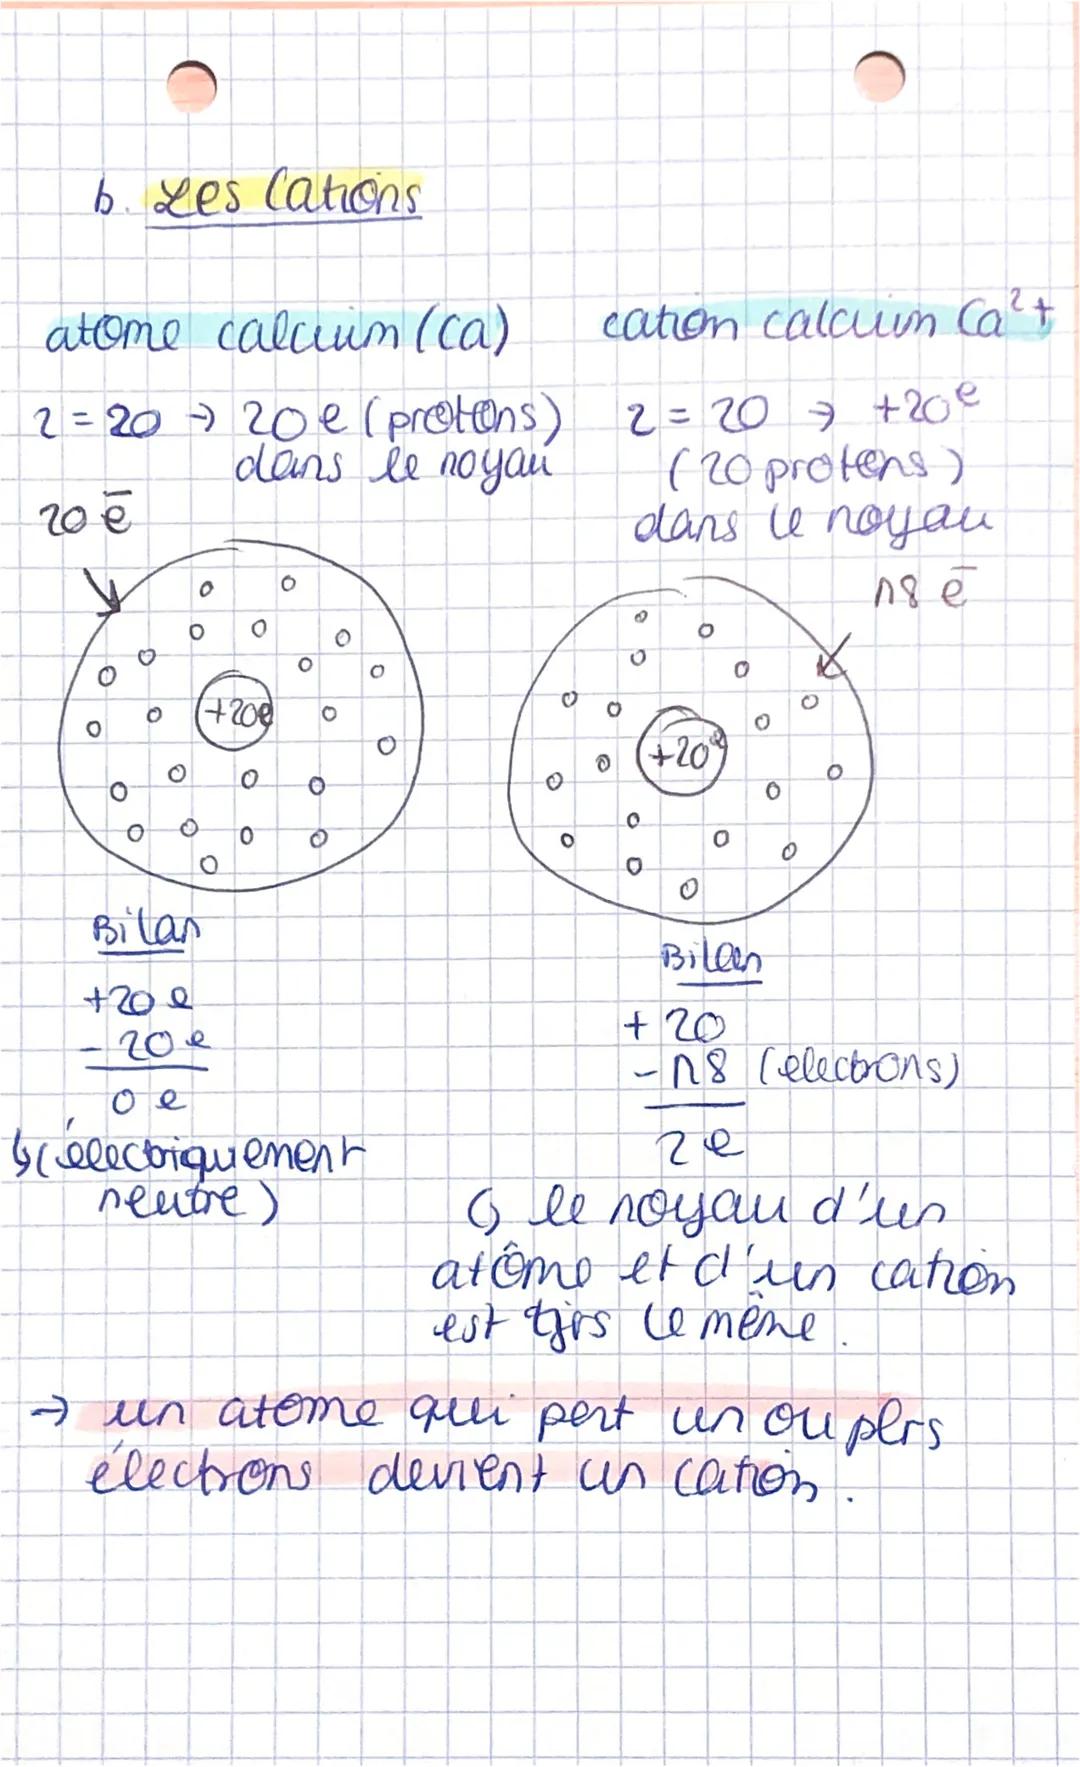 b. Les Cations
atome calcium (Ca)
z = 20 → 20 e (protons)
dans le noyau
20 e̅
+20e
Bilan
+20 e
- 20 e
0 e
↳ (électriquement
neutre)
cation calcium Ca²⁺
z = 20 → +20e
(20 protons)
dans le noyau
18 e̅
+20e
Bilan
+ 20
- 18 (électrons)
2 e
↳ le noyau d'un
atôme et d'un cation
est tjrs le même.
→ un atome qui pert un ou plrs
électrons devient un cation.